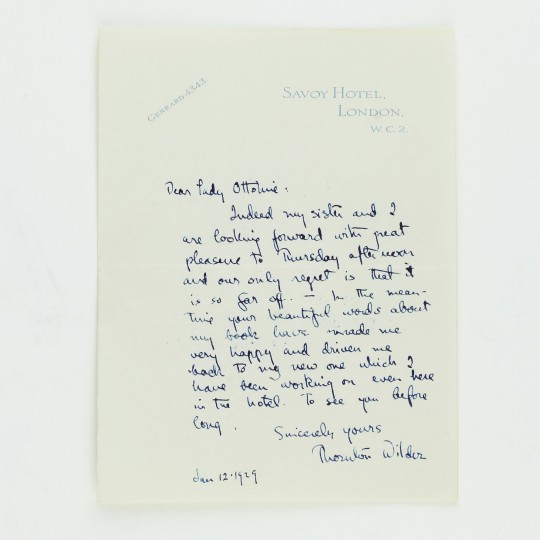 GERRARD 4343
SAVOY HOTEL,
LONDON,
W.C.2.
Dear Lady Ottoline:
Indeed my sister and I
are looking forward with great
pleasure to Thursday afternoon
and our only regret is that it
is so far off. — In the mean-
time your beautiful words about
my book have made me
very happy and driven me
back to my new one which I
have been working on even here
in the hotel. To see you before
long.
Sincerely yours
Thornton Wilder
Jan 12·1929